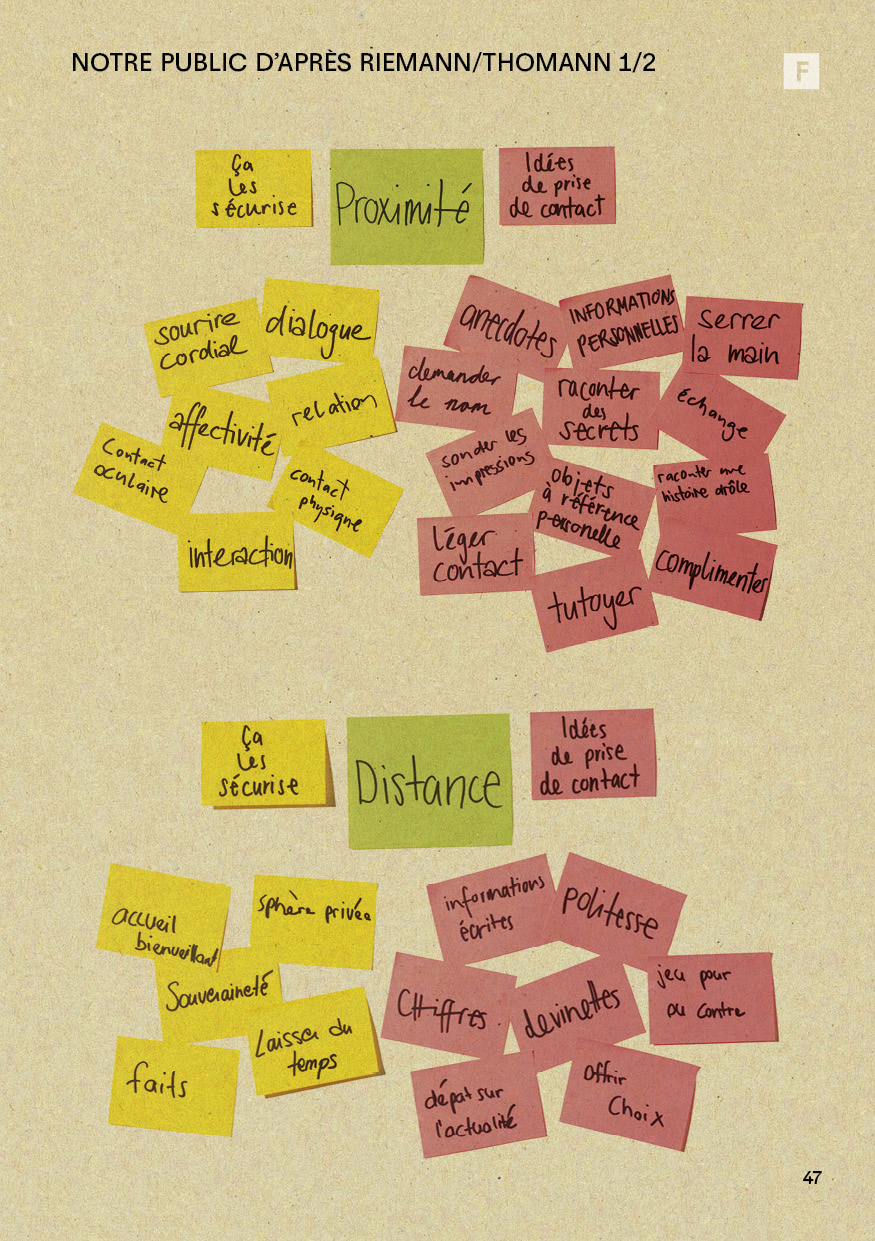 NOTRE PUBLIC D'APRÈS RIEMANN/THOMANN 1/2
F
Ça
les
sécurise
Proximité
Idées
de prise
de contact
sourire
cordial
dialogue
affectivité
relation
Contact
oculaire
contact
physique
interaction
anecdotes
INFORMATIONS
PERSONNELLES
serrer
la main
demander
le nom
raconter
des
secrets
échange
sonder les
impressions
objets
à référence
personelle
raconter une
histoire drôle
léger
contact
tutoyer
complimenter
Ça
les
sécurise
Distance
Idées
de prise
de contact
accueil
bienveillant
sphère privée
Souveraineté
Laisser du
temps
faits
informations
écrites
politesse
CHiffres
devinettes
jeu pour
ou contre
dépat sur
l'actualité
offrir
Choix
47